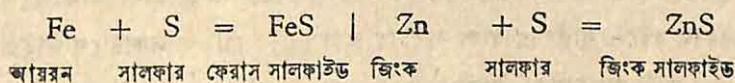 Fe + S = FeS | Zn + S = ZnS
আয়রন সালফার ফেরাস সালফাইড জিংক সালফার জিংক সালফাইড